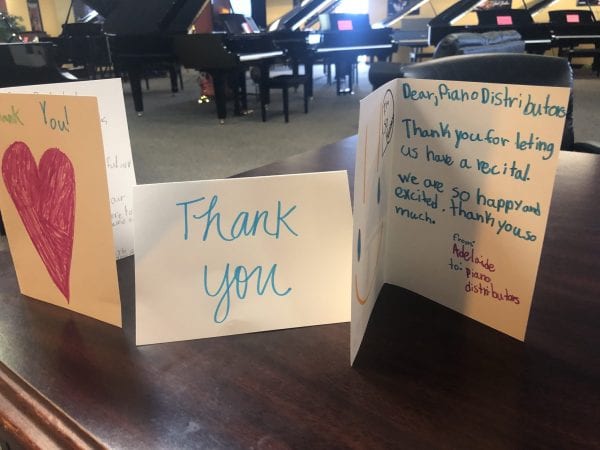 Thank You!
Thank
you
Dear, Piano Distributors
Thank you for leting
us have a recital.
we are so happy and
excited. Thank you so
much.
from:
Adelaide
to: piano
distributors